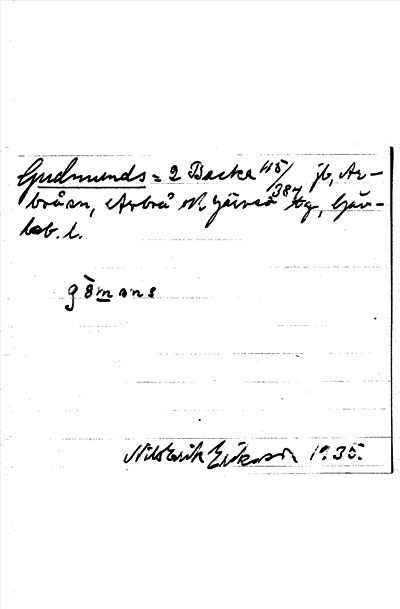 Gudmunds = 2 Backa 45/387 jb, Ar-
brå sn, Arbrå och Järvsö tg, Gäv-
leb. l.
gömans
Nils Erik Eriksson 1935.